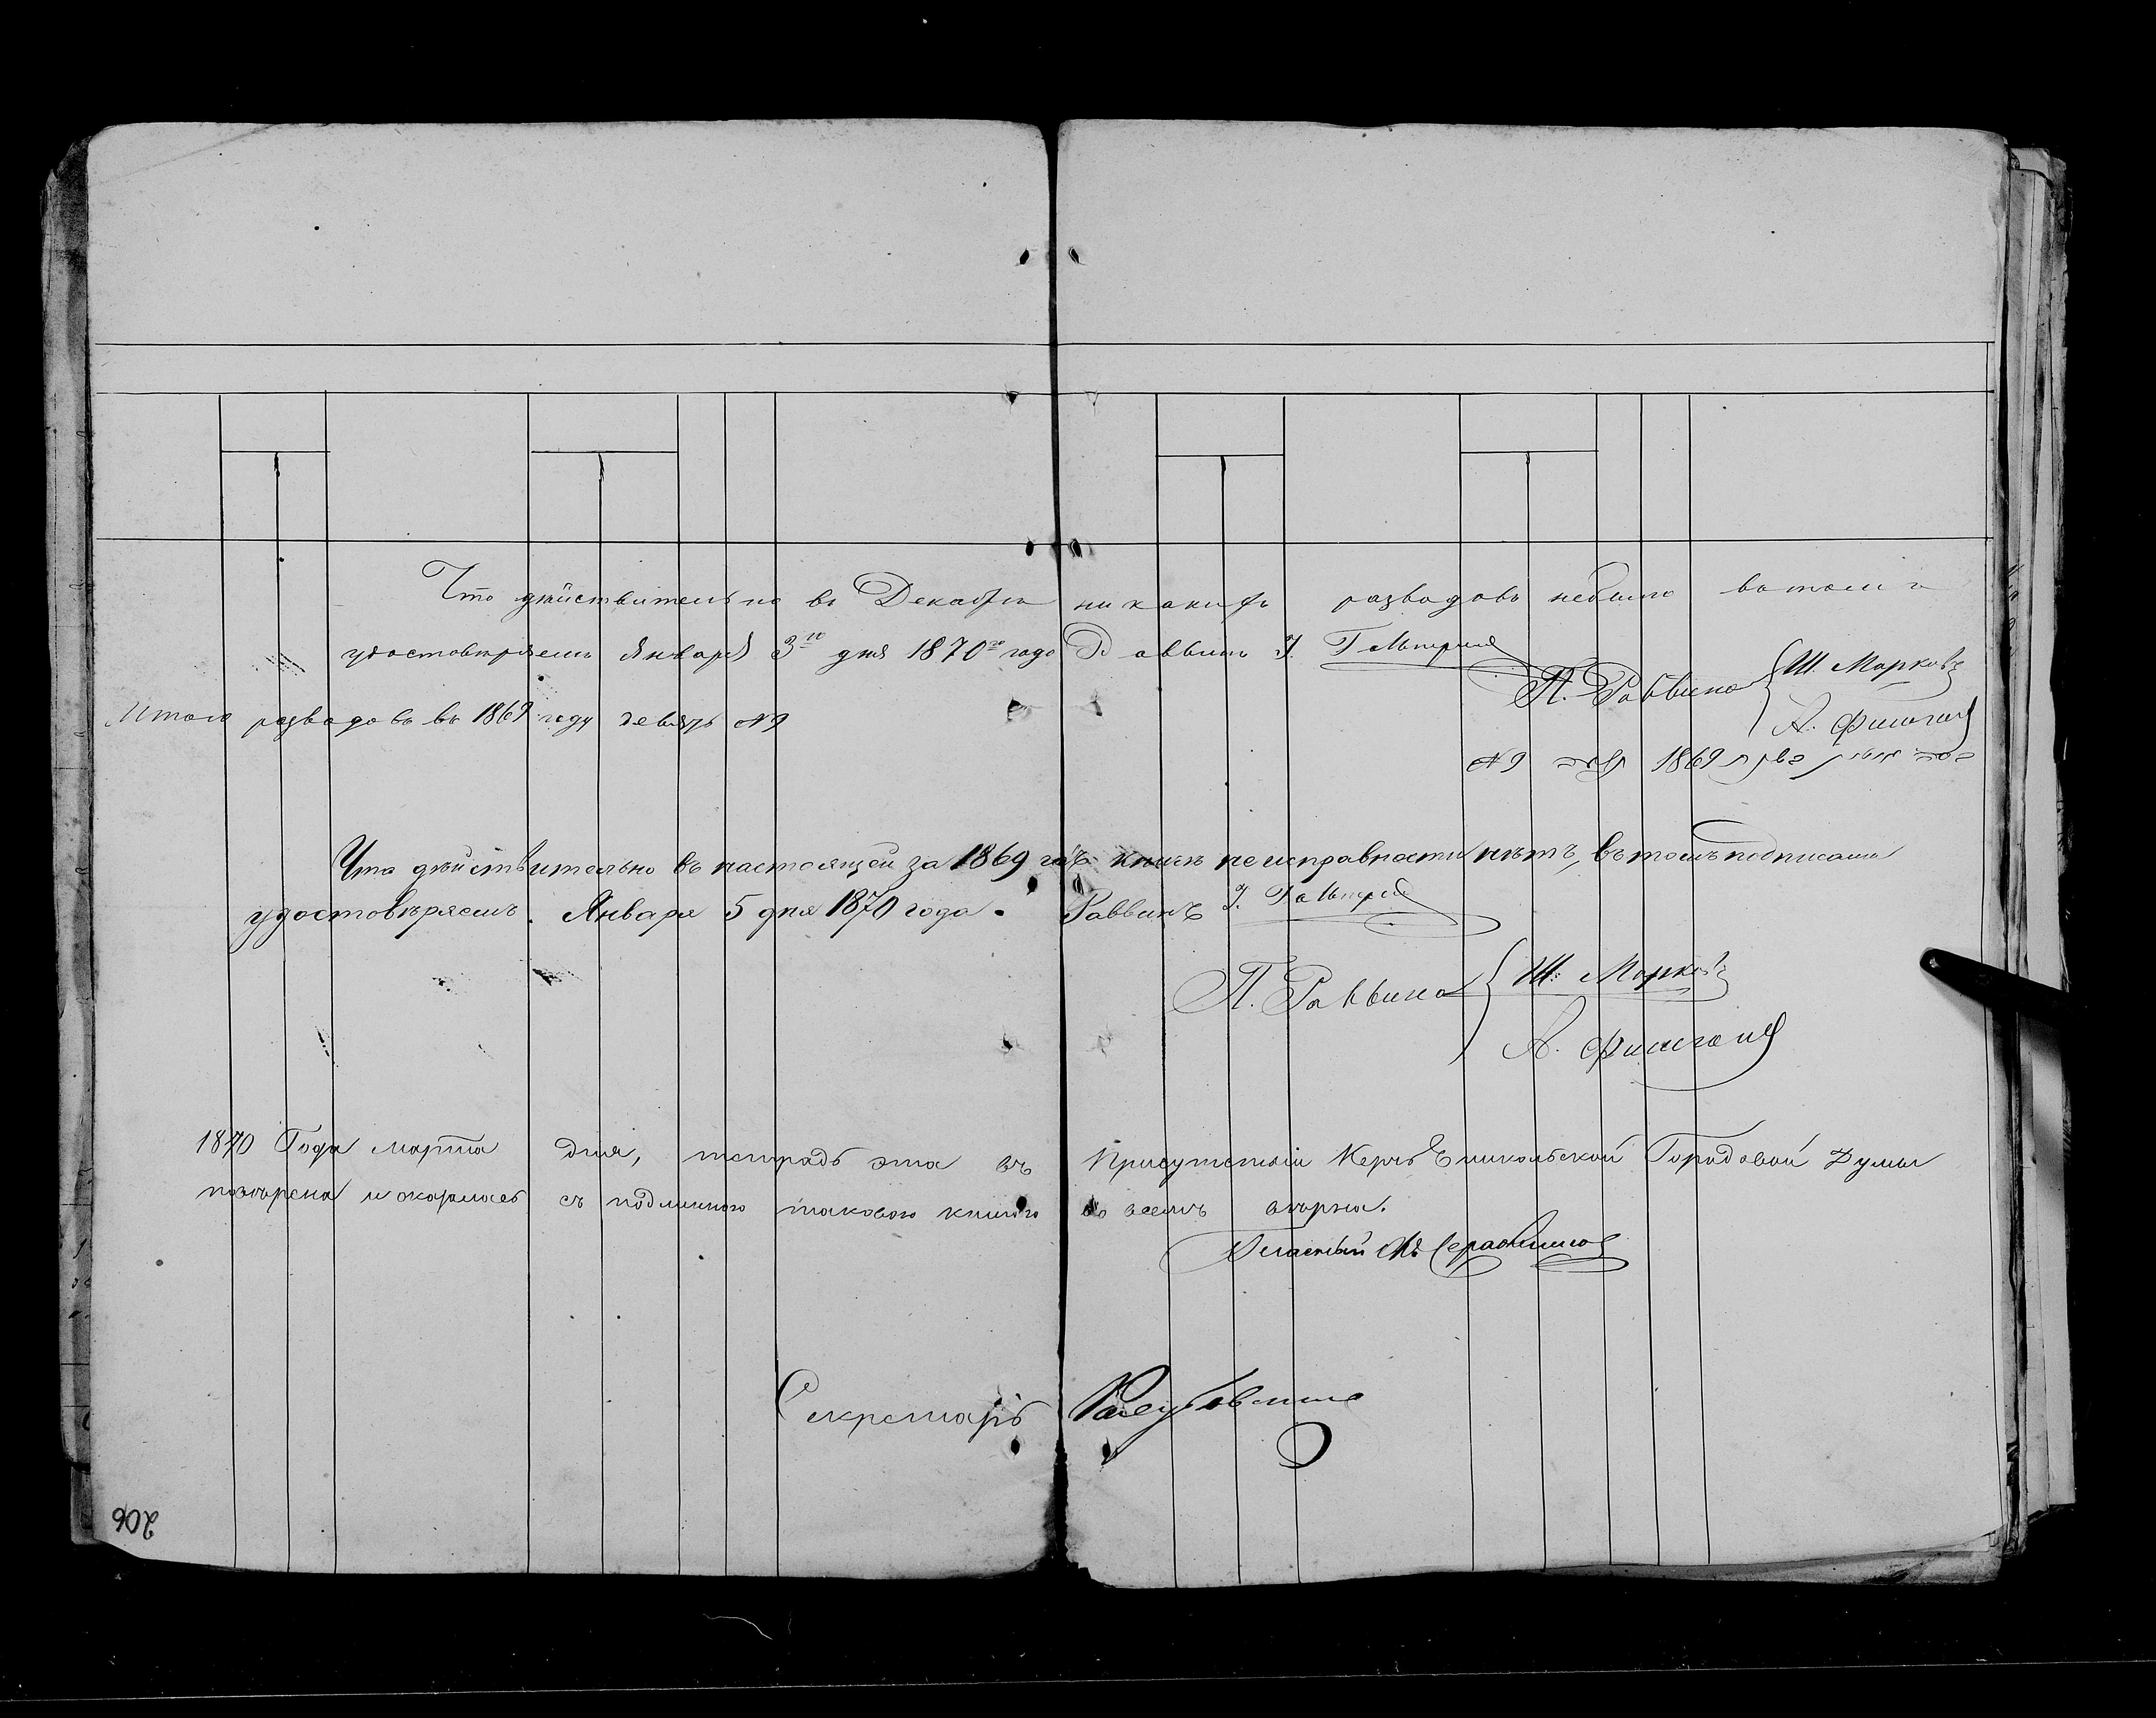 Что дѣйствительно въ Декабрѣ никакихъ разводовъ небыло въ томъ и
удостовѣряемъ Января 3го дня 1870го года Раввинъ Г. Гальперинъ
П. Раввина { Ш. Марковъ
А. Фишгойтъ
Итого разводовъ въ 1869 году девять №9
№9 1869
Что дѣйствительно въ настоящей за 1869 годъ книгѣ неисправности нѣтъ, въ томъ подписами
удостовѣряемъ. Января 5 дня 1870 года. Раввинъ Г. Гальперинъ
П. Раввина { Ш. Марковъ
А. Фишгойтъ
1870 Года марта дня, тетрадь эта въ присутствіи Керчь Еникольской Городовой Думы
повѣрена и оказалась съ подлинною таковою книгою во всемъ вѣрна.
Гласный
Секретарь
206